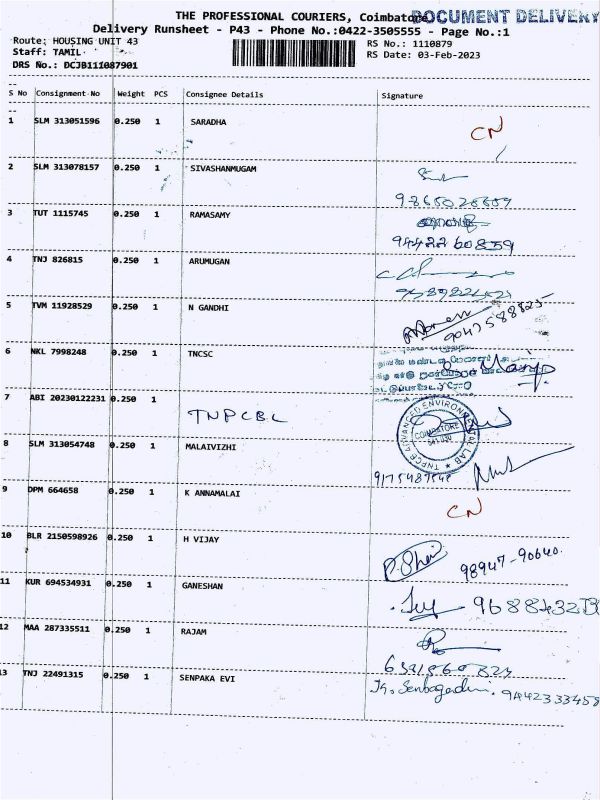 THE PROFESSIONAL COURIERS, Coimbatore
DOCUMENT DELIVERY
Delivery Runsheet - P43 - Phone No.:0422-3505555 - Page No.:1
Route: HOUSING UNIT 43
RS No.: 1110879
Staff: TAMIL
RS Date: 03-Feb-2023
DRS No.: DCJB111087901
S No Consignment No Weight PCS Consignee Details Signature
1 SLM 313051596 0.250 1 SARADHA CN
2 SLM 313078157 0.250 1 SIVASHANMUGAM
3 TUT 1115745 0.250 1 RAMASAMY
94422 60859
4 TNJ 826815 0.250 1 ARUMUGAN
5 TVM 11928529 0.250 1 N GANDHI
9047588825
6 NKL 7998248 0.250 1 TNCSC
7 ABI 20230122231 0.250 1 TNPCBL
TNPCB ADVANCED ENVIRONMENTAL LAB
COIMBATORE
641 030
8 SLM 313054748 0.250 1 MALAIVIZHI
9 DPM 664658 0.250 1 K ANNAMALAI CN
10 BLR 2150598926 0.250 1 H VIJAY
98947-90640.
11 KUR 694534931 0.250 1 GANESHAN
12 MAA 287335511 0.250 1 RAJAM
13 TNJ 22491315 0.250 1 SENPAKA EVI
9442333458